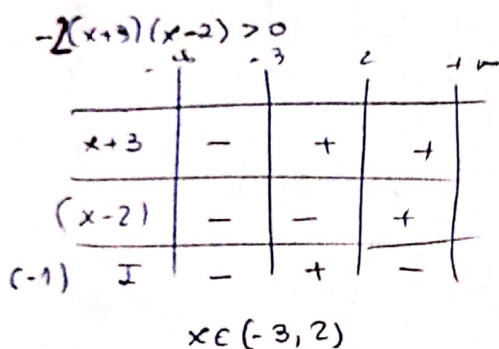 -2(x+3)(x-2) > 0
-∞ -3 2 +∞
x+3 - + +
(x-2) - - +
(-1) I - + -
x∈(-3, 2)